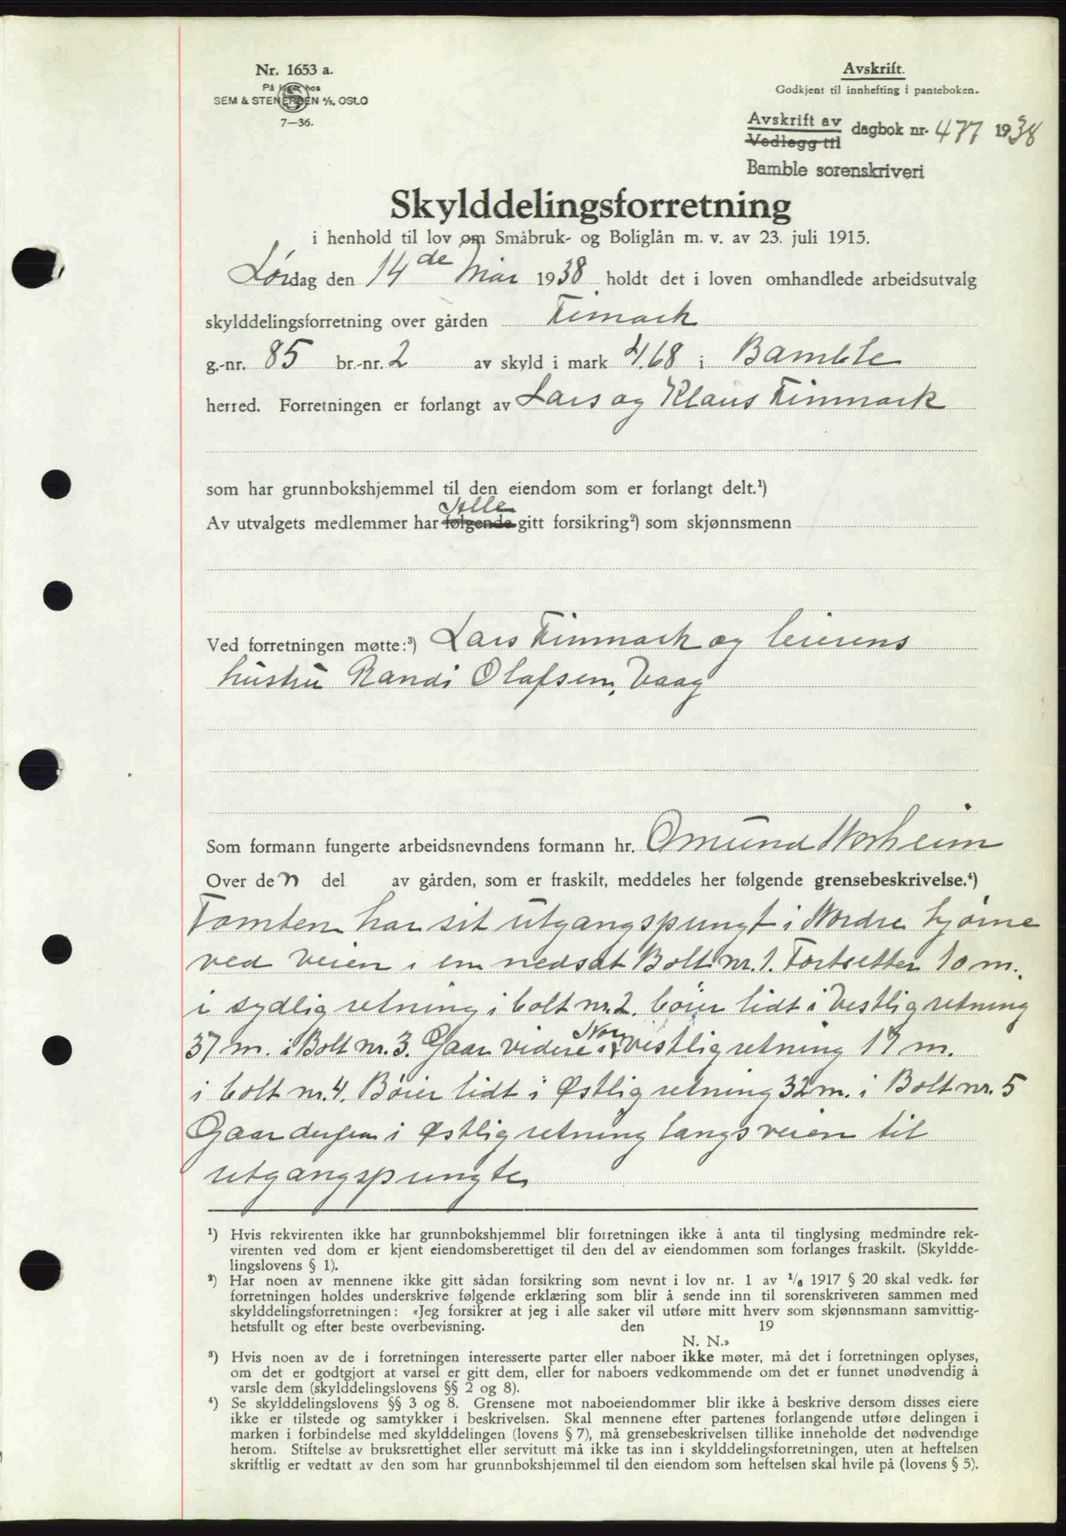 Nr. 1653 a.
På lager hos
SEM & STENERSEN A/S, OSLO
7—36.
Avskrift.
Godkjent til innhefting i panteboken.
Avskrift av
Vedlegg til
dagbok nr. 477 1938
Bamble sorenskriveri
Skylddelingsforretning
i henhold til lov om Småbruk- og Boliglån m. v. av 23. juli 1915.
Lördag den 14de Mai 1938 holdt det i loven omhandlede arbeidsutvalg
skylddelingsforretning over gården Finmark
g.-nr. 85 br.-nr. 2 av skyld i mark 4,68 i Bamble
herred. Forretningen er forlangt av Lars og Klaus Finmark
som har grunnbokshjemmel til den eiendom som er forlangt delt.¹)
Alle
Av utvalgets medlemmer har følgende gitt forsikring²) som skjønnsmenn
Ved forretningen møtte:³) Lars Finmark og leierens
hustru Randi Olafsen, Vaag
Som formann fungerte arbeidsnevndens formann hr. Omund Norheim
Over den del av gården, som er fraskilt, meddeles her følgende grensebeskrivelse.⁴)
Tomten har sit utgangspungt i Nordre hjørne
ved veien i en nedsat Bolt nr. 1. Fortsetter 10 m.
i sydlig retning i bolt nr. 2. böier lidt i Vestlig retning
37 m. i Bolt nr. 3. Gaar videre i Nordvestlig retning 19 m.
i bolt nr. 4. Bøier lidt i Østlig retning 32 m. i Bolt nr. 5
Gaar derfra i østlig retning langs veien til
utgangspungte
¹) Hvis rekvirenten ikke har grunnbokshjemmel blir forretningen ikke å anta til tinglysing medmindre rek-
virenten ved dom er kjent eiendomsberettiget til den del av eiendommen som forlanges fraskilt. (Skyldde-
lingslovens § 1).
²) Har noen av mennene ikke gitt sådan forsikring som nevnt i lov nr. 1 av 1/6 1917 § 20 skal vedk. før
forretningen holdes underskrive følgende erklæring som blir å sende inn til sorenskriveren sammen med
skylddelingsforretningen: «Jeg forsikrer at jeg i alle saker vil utføre mitt hverv som skjønnsmann samvittig-
hetsfullt og efter beste overbevisning. den 19
N. N.»
³) Hvis noen av de i forretningen interesserte parter eller naboer ikke møter, må det i forretningen oplyses,
om det er godtgjort at varsel er gitt dem, eller for naboers vedkommende om det er funnet unødvendig å
varsle dem (skylddelingslovens §§ 2 og 8).
⁴) Se skylddelingslovens §§ 3 og 8. Grensene mot naboeiendommer blir ikke å beskrive dersom disses eiere
ikke er tilstede og samtykker i beskrivelsen. Skal mennene efter partenes forlangende utføre delingen i
marken i forbindelse med skylddelingen (lovens § 7), må grensebeskrivelsen tillike inneholde det nødvendige
herom. Stiftelse av bruksrettighet eller servitutt må ikke tas inn i skylddelingsforretningen, uten at heftelsen
skriftlig er vedtatt av den som har grunnbokshjemmel til den eiendom som heftelsen skal hvile på (lovens § 5).